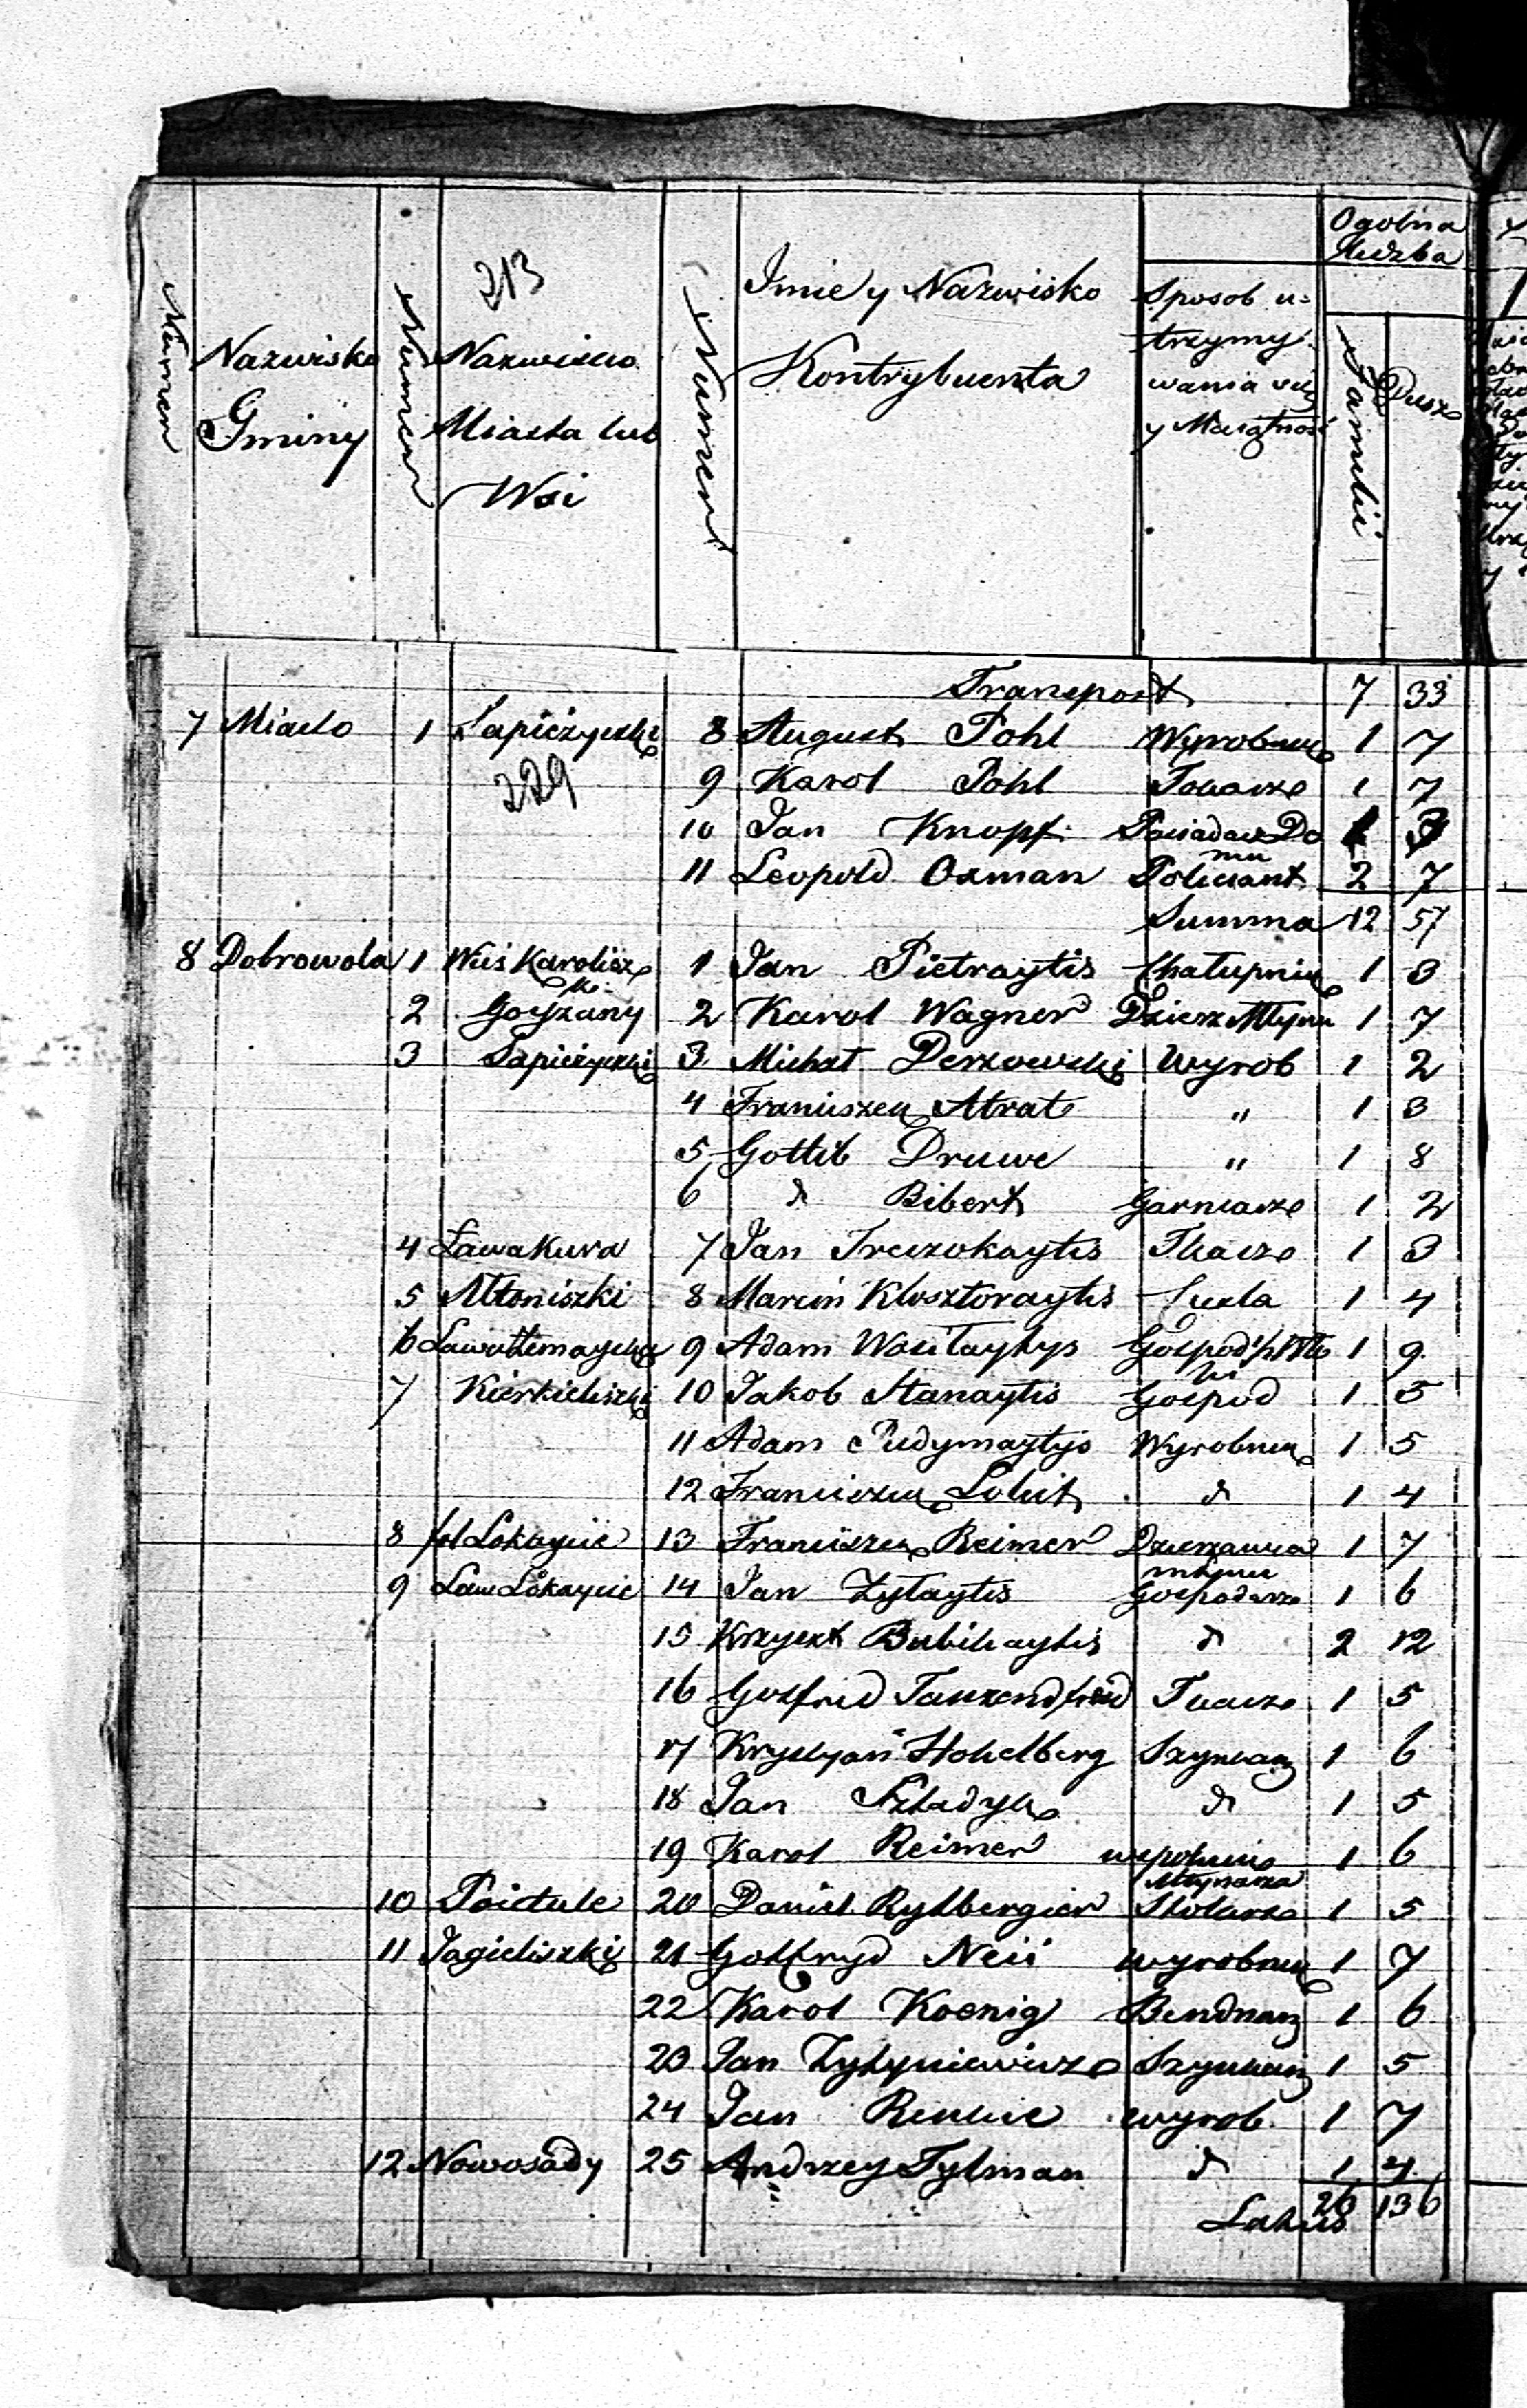 213
Numer Nazwisko Gminy Numer Nazwisko Miasta lub Wsi Numer Imie y Nazwisko Kontrybuenta Sposob u= trzymy wania się y Maiątność Ogolna liczba Familii Dusz
Transport 7 33
7 Miasto 1 Sapieżyszki 8 August Pohl Wyrobnik 1 7
229 9 Karol Pohl Tokarz 1 7
10 Jan Knopf Posiadacz Do 1 3
mu
11 Leopold Oxman Policiant 2 7
Summa 12 57
8 Dobrowola 1 Wieś Karolisz 1 Jan Pietraytis Chałupnik 1 3
ki
2 Goyżany 2 Karol Wagner Dzierz Młynu 1 7
3 Sapieżyszki 3 Michał Derzowski Wyrob 1 2
4 Franciszek Strat " 1 3
5 Gottlib Druwe " 1 8
6 d Bibert Garncarz 1 2
4 Ławakura 7 Jan Treczokaytis Tkacz 1 3
5 Młoniszki 8 Marcin Klosztoraytis Cieśla 1 4
6 9 Adam Wasilaytys Gospod 1 9
7 Kierkieliszki 10 Jakob Stanaytis Gospod 1 5
11 Adam Pudymaytys Wyrobnik 1 5
12 Franciszek Lobit d 1 4
8 fol Łokaycie 13 Franciszek Reimer Dzierzawca 1 7
młynu
9 Ław Łokaycie 14 Jan Zytaytis Gospodarz 1 6
15 Krzyszt Bubiłaytis d 2 12
16 Gotfried Tauzendfreid Tkacz 1 5
17 Krystyan Stohelberg Szynkarz 1 6
18 Jan Szładyk d 1 5
19 Karol Reimer wspolnie 1 6
Młynarza
10 Poidule 20 Daniel Rylbergier Stolarz 1 5
11 Jagieliszki 21 Gottfryd Neii wyrobnik 1 7
22 Karol Koenig Bendnarz 1 6
23 Jan Zyłyniewicz Szynkarz 1 5
24 Jan Renkie wyrob 1 7
12 Nowosady 25 Andrzey Tylman d 1 4
Latus 26 136